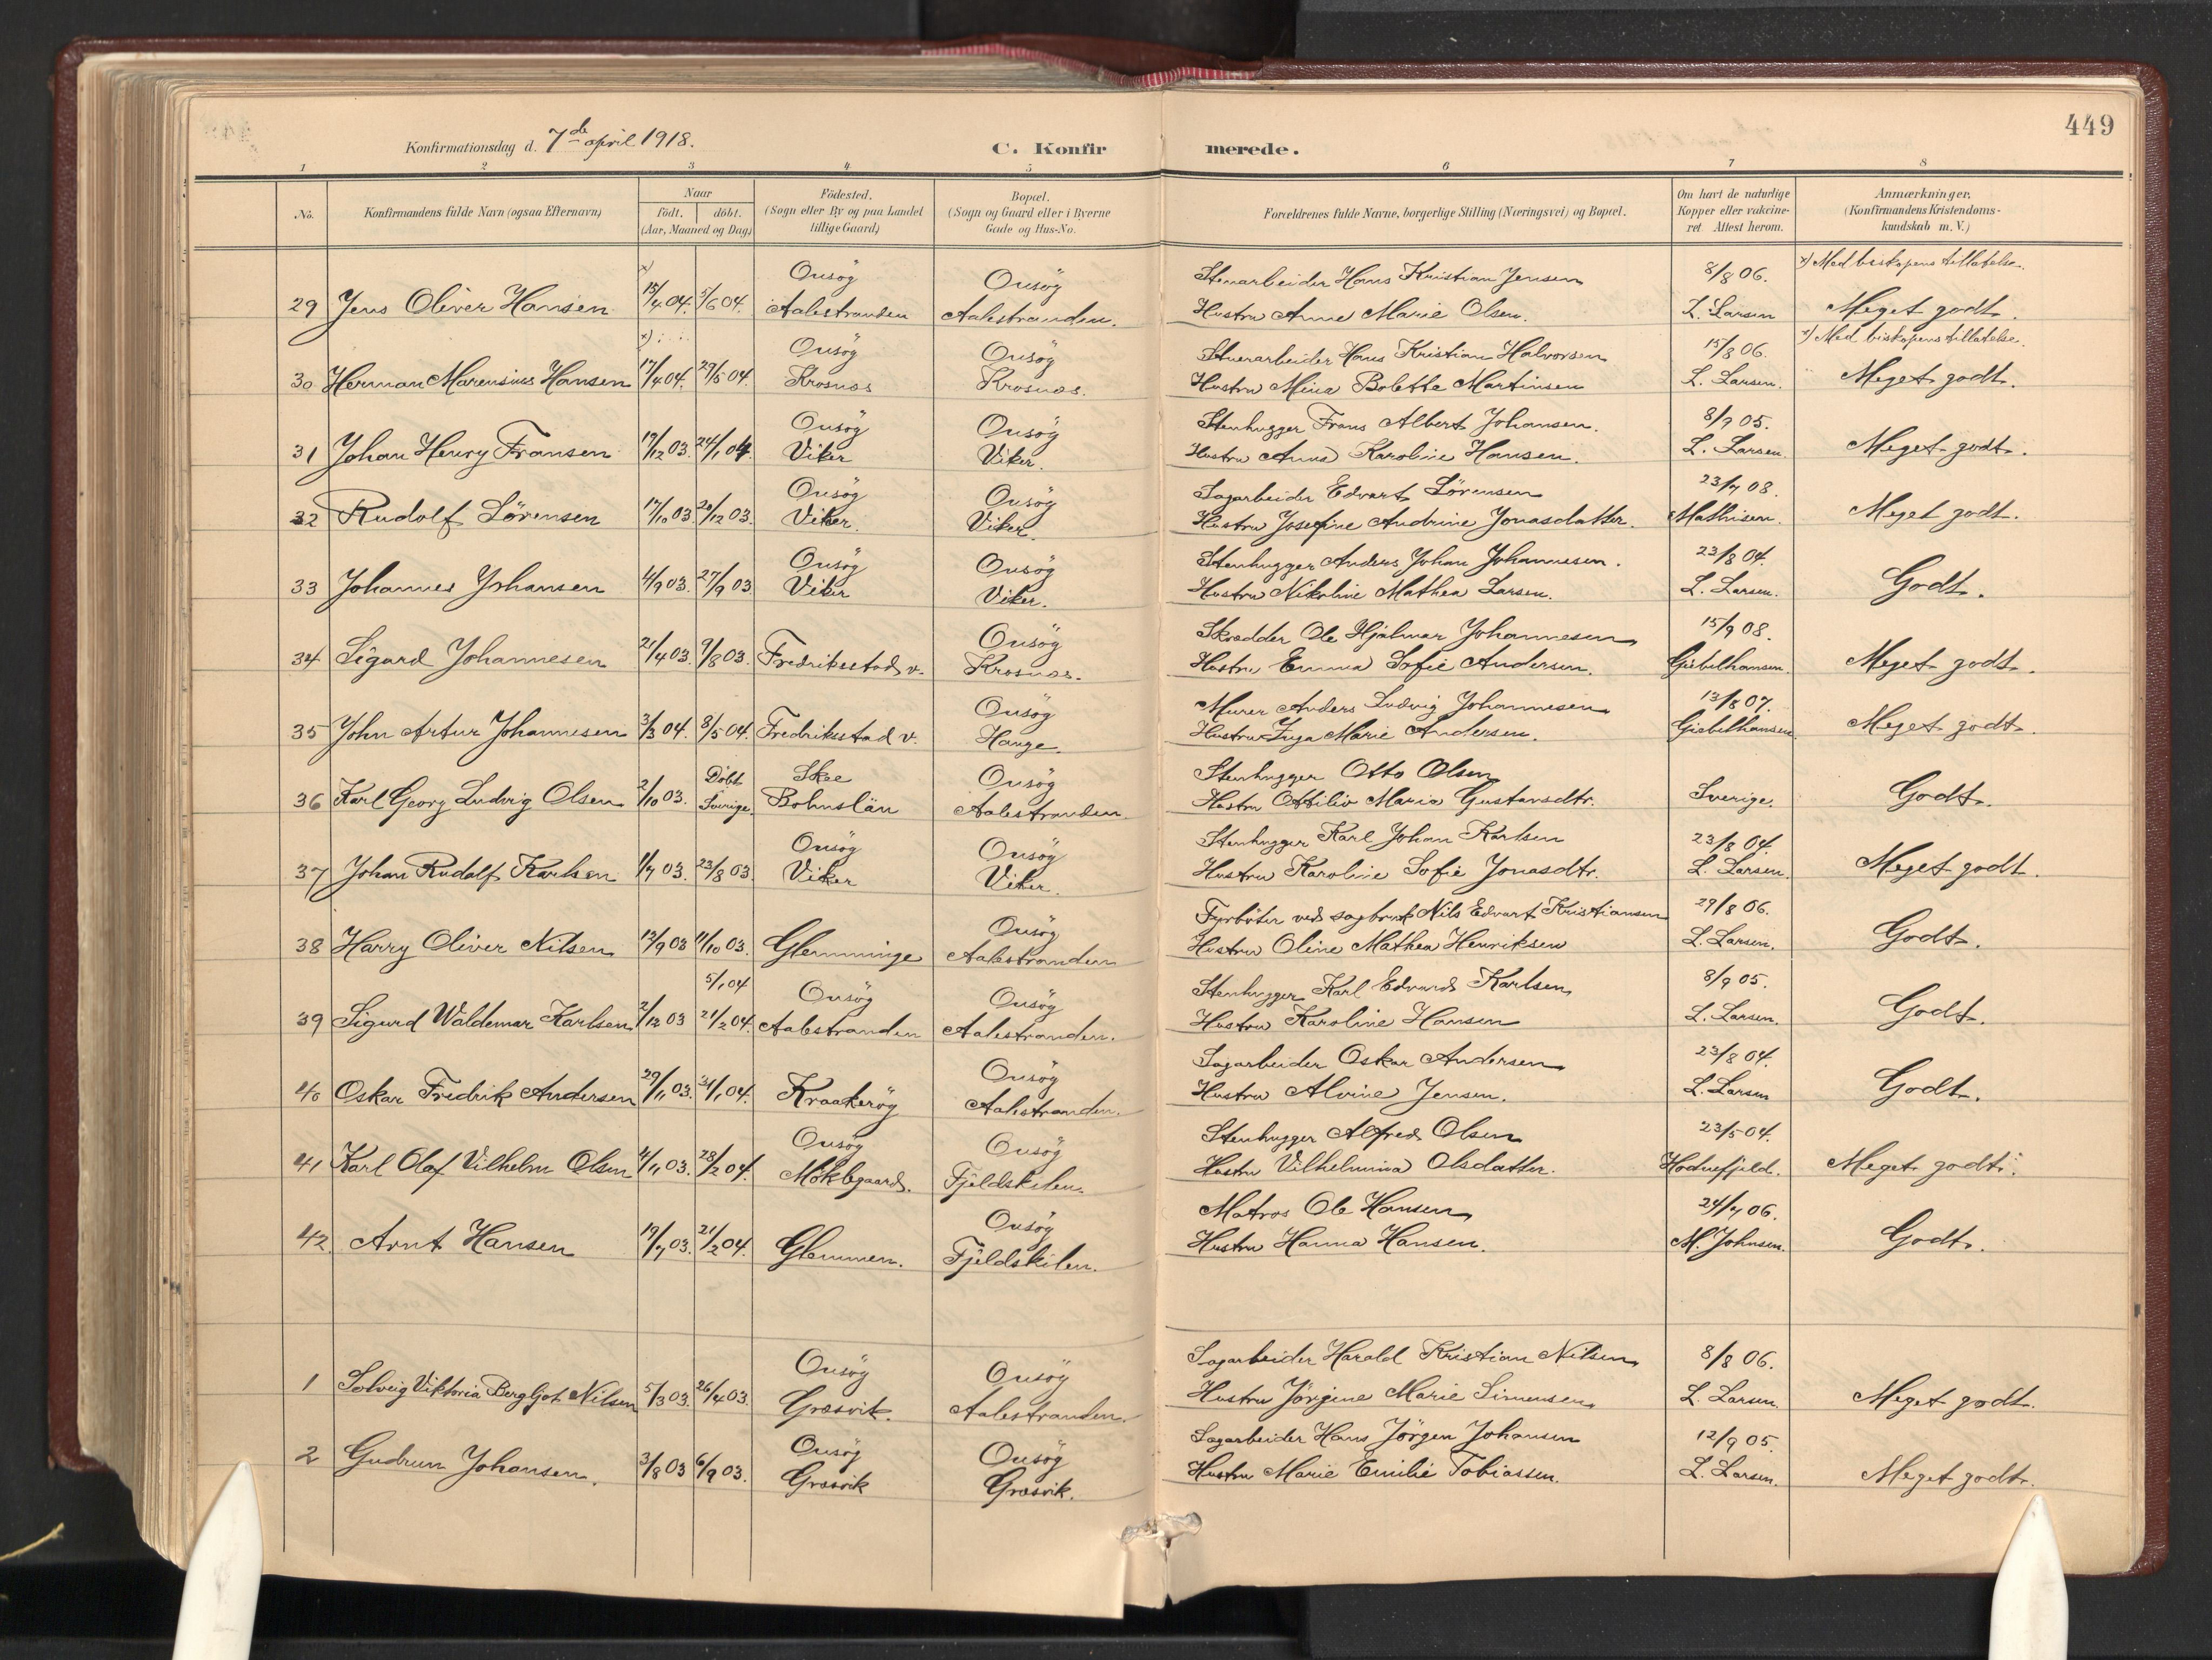 449
Konfirmationsdag d. 7de april 1918.
C. Konfirmerede.
1 2 3 4 5 6 7 8
No. Konfirmandens fulde Navn (ogsaa Efternavn) Naar födt. döbt. (Aar, Maaned og Dag) Födested. (Sogn eller By og paa Landet tillige Gaard) Bopæl. (Sogn og Gaard eller i Byerne Gade og Hus-No. Forældrenes fulde Navne, borgerlige Stilling (Næringsvei) og Bopæl. Om havt de naturlige Kopper eller vakcineret. Attest herom. Anmærkninger. (Konfirmandens Kristendomskundskab m. V.)
x) Onsøy Onsøy Stenarbeider Hans Kristian Jensen 8/8 06. x) Med biskopens tillatelse.
29 Jens Oliver Hansen 15/4 04. 5/6 04. Aalestranden Aalestranden. Hustru Anne Marie Olsen. L. Larsen Meget godt.
x) Onsøy Onsøy Stenarbeider Hans Kristian Halvorsen 15/8 06. x) Med biskopens tillatelse.
30 Herman Marensius Hansen 17/4 04. 29/5 04. Krosnæs Krosnæs. Hustru Mina Bolette Martinsen L. Larsen. Meget godt.
Onsøy Onsøy Stenhugger Frans Albert Johansen. 8/9 05.
31 Johan Henry Fransen 19/12 03. 24/1 04. Viker Viker. Hustru Anna Karoline Hansen. L. Larsen. Meget godt.
Onsøy Onsøy Sagarbeider Edvart Sörensen 23/7 08.
32 Rudolf Sörensen 17/10 03. 20/12 03. Viker. Viker. Hustru Josefine Andrine Jonasdatter. Mathisen. Meget godt.
Onsøy Onsøy Stenhugger Anders Johan Johannesen. 23/8 04.
33 Johannes Johansen 4/9 03. 27/9 03 Viker Viker. Hustru Nikoline Mathea Larsen. L. Larsen. Godt.
Onsøy Skrædder Ole Hjalmar Johannesen 15/9 08.
34 Sigurd Johannesen 21/4 03. 9/8 03. Fredriksstad v. Krosnæs. Hustru Emma Sofie Andersen. Giebelhausen. Meget godt.
Onsøy Murer Anders Ludvig Johannesen 13/8 07.
35 John Artur Johannesen 3/3 04. 8/5 04. Fredriksstad v. Hauge. Hustru Inga Marie Andersen. Giebelhausen Meget godt.
Döbt Skee Onsøy Stenhugger Otto Olsen
36 Karl Georg Ludvig Olsen 2/10 03. Sverige. Bohuslän Aalestranden. Hustru Ottilia Maria Gustavsdtr. Sverige. Godt.
Onsøy Onsøy Stenhugger Karl Johan Karlsen 23/8 04.
37 Johan Rudolf Karlsen 1/7 03. 23/8 03 Viker Viker. Hustru Karoline Sofie Jonasdtr. L. Larsen. Meget godt.
Onsøy Fyrböter ved sagbruk Nils Edvart Kristiansen 29/8 06.
38 Harry Oliver Nilsen 12/9 03 11/10 03. Glemminge Aalestranden Hustru Oline Mathea Henriksen L. Larsen. Godt.
5/1 04 Onsøy Onsøy Stenhugger Karl Edvard Karlsen 8/9 05.
39 Sigurd Waldemar Karlsen 2/12 03 21/2 04. Aalestranden Aalestranden. Hustru Karoline Hansen L. Larsen. Godt.
Onsøy Sagarbeider Oskar Andersen 23/8 04.
40 Oskar Fredrik Andersen 29/11 03. 31/1 04. Kraakerøy Aalestranden. Hustru Alvine Jensen. L. Larsen Godt.
Onsøy Onsøy Stenhugger Alfred Olsen 23/5 04.
41 Karl Olaf Vilhelm Olsen 4/11 03. 28/2 04. Möklegaard. Fjeldskilen. Hustru Vilhelmina Olsdatter. Hodnefjeld. Meget godt.
Onsøy Matros Ole Hansen 24/7 06.
42 Arnt Hansen 19/7 03. 21/2 04. Glemmen. Fjeldskilen. Hustru Hanna Hansen. M. Johnsen. Godt.
Onsøy Onsøy Sagarbeider Harald Kristian Nilsen 8/8 06.
1 Solveig Viktoria Bergljot Nilsen 5/3 03. 26/4 03. Græsvik. Aalestranden. Hustru Jörgine Marie Simensen L. Larsen. Meget godt.
Onsøy Onsøy Sagarbeider Hans Jörgen Johansen 12/9 05.
2 Gudrun Johansen. 3/8 03 6/9 03. Græsvik Græsvik. Hustru Marie Emilie Tobiassen. L. Larsen. Meget godt.